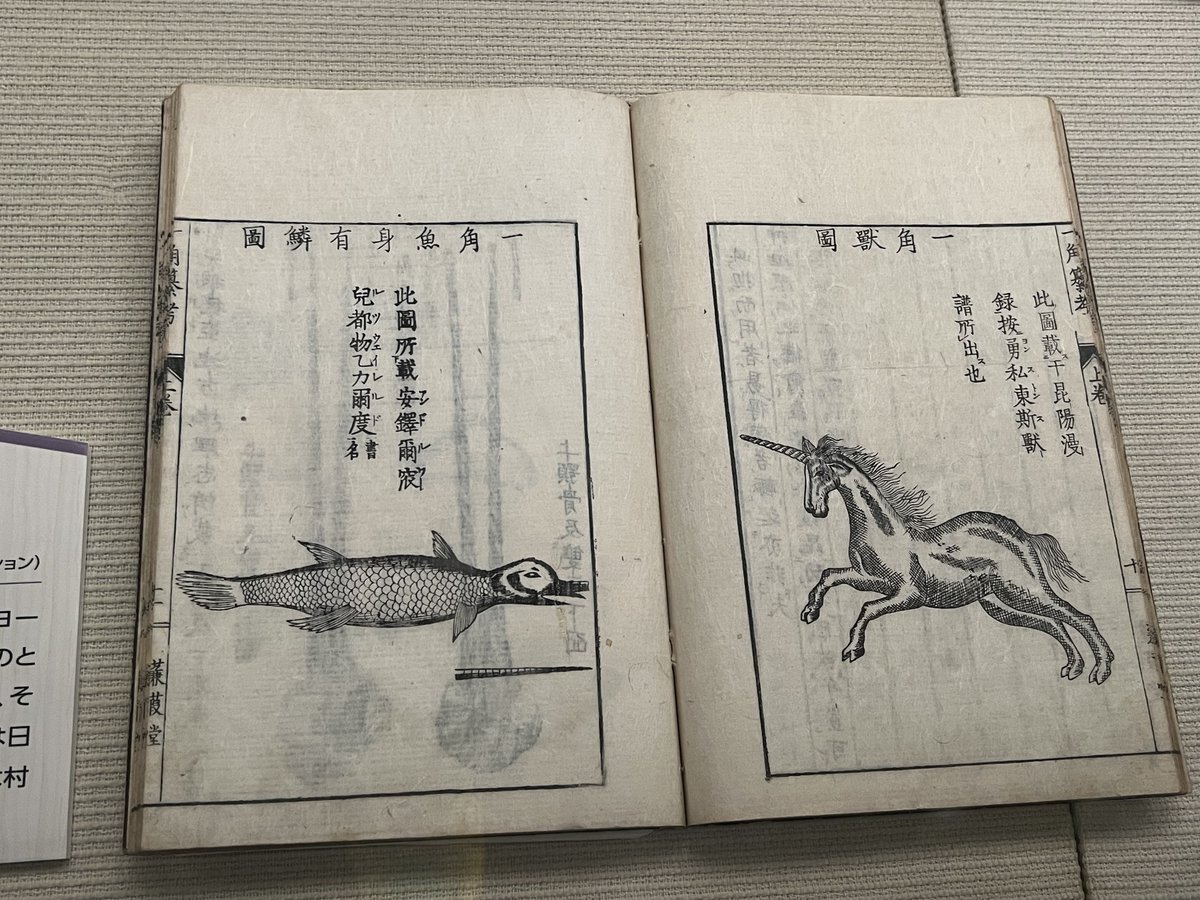 一角纂考
上卷
十
一角獸圖
此圖載ス于昆陽漫
録按勇私東斯獸
譜所出也
一角魚身有鱗圖
此圖所載安鐸爾
兒都物乙力爾度書名
一角纂考
上卷
十一
蒹葭堂
ション）
ヨー
のと
、そ
は日
木村